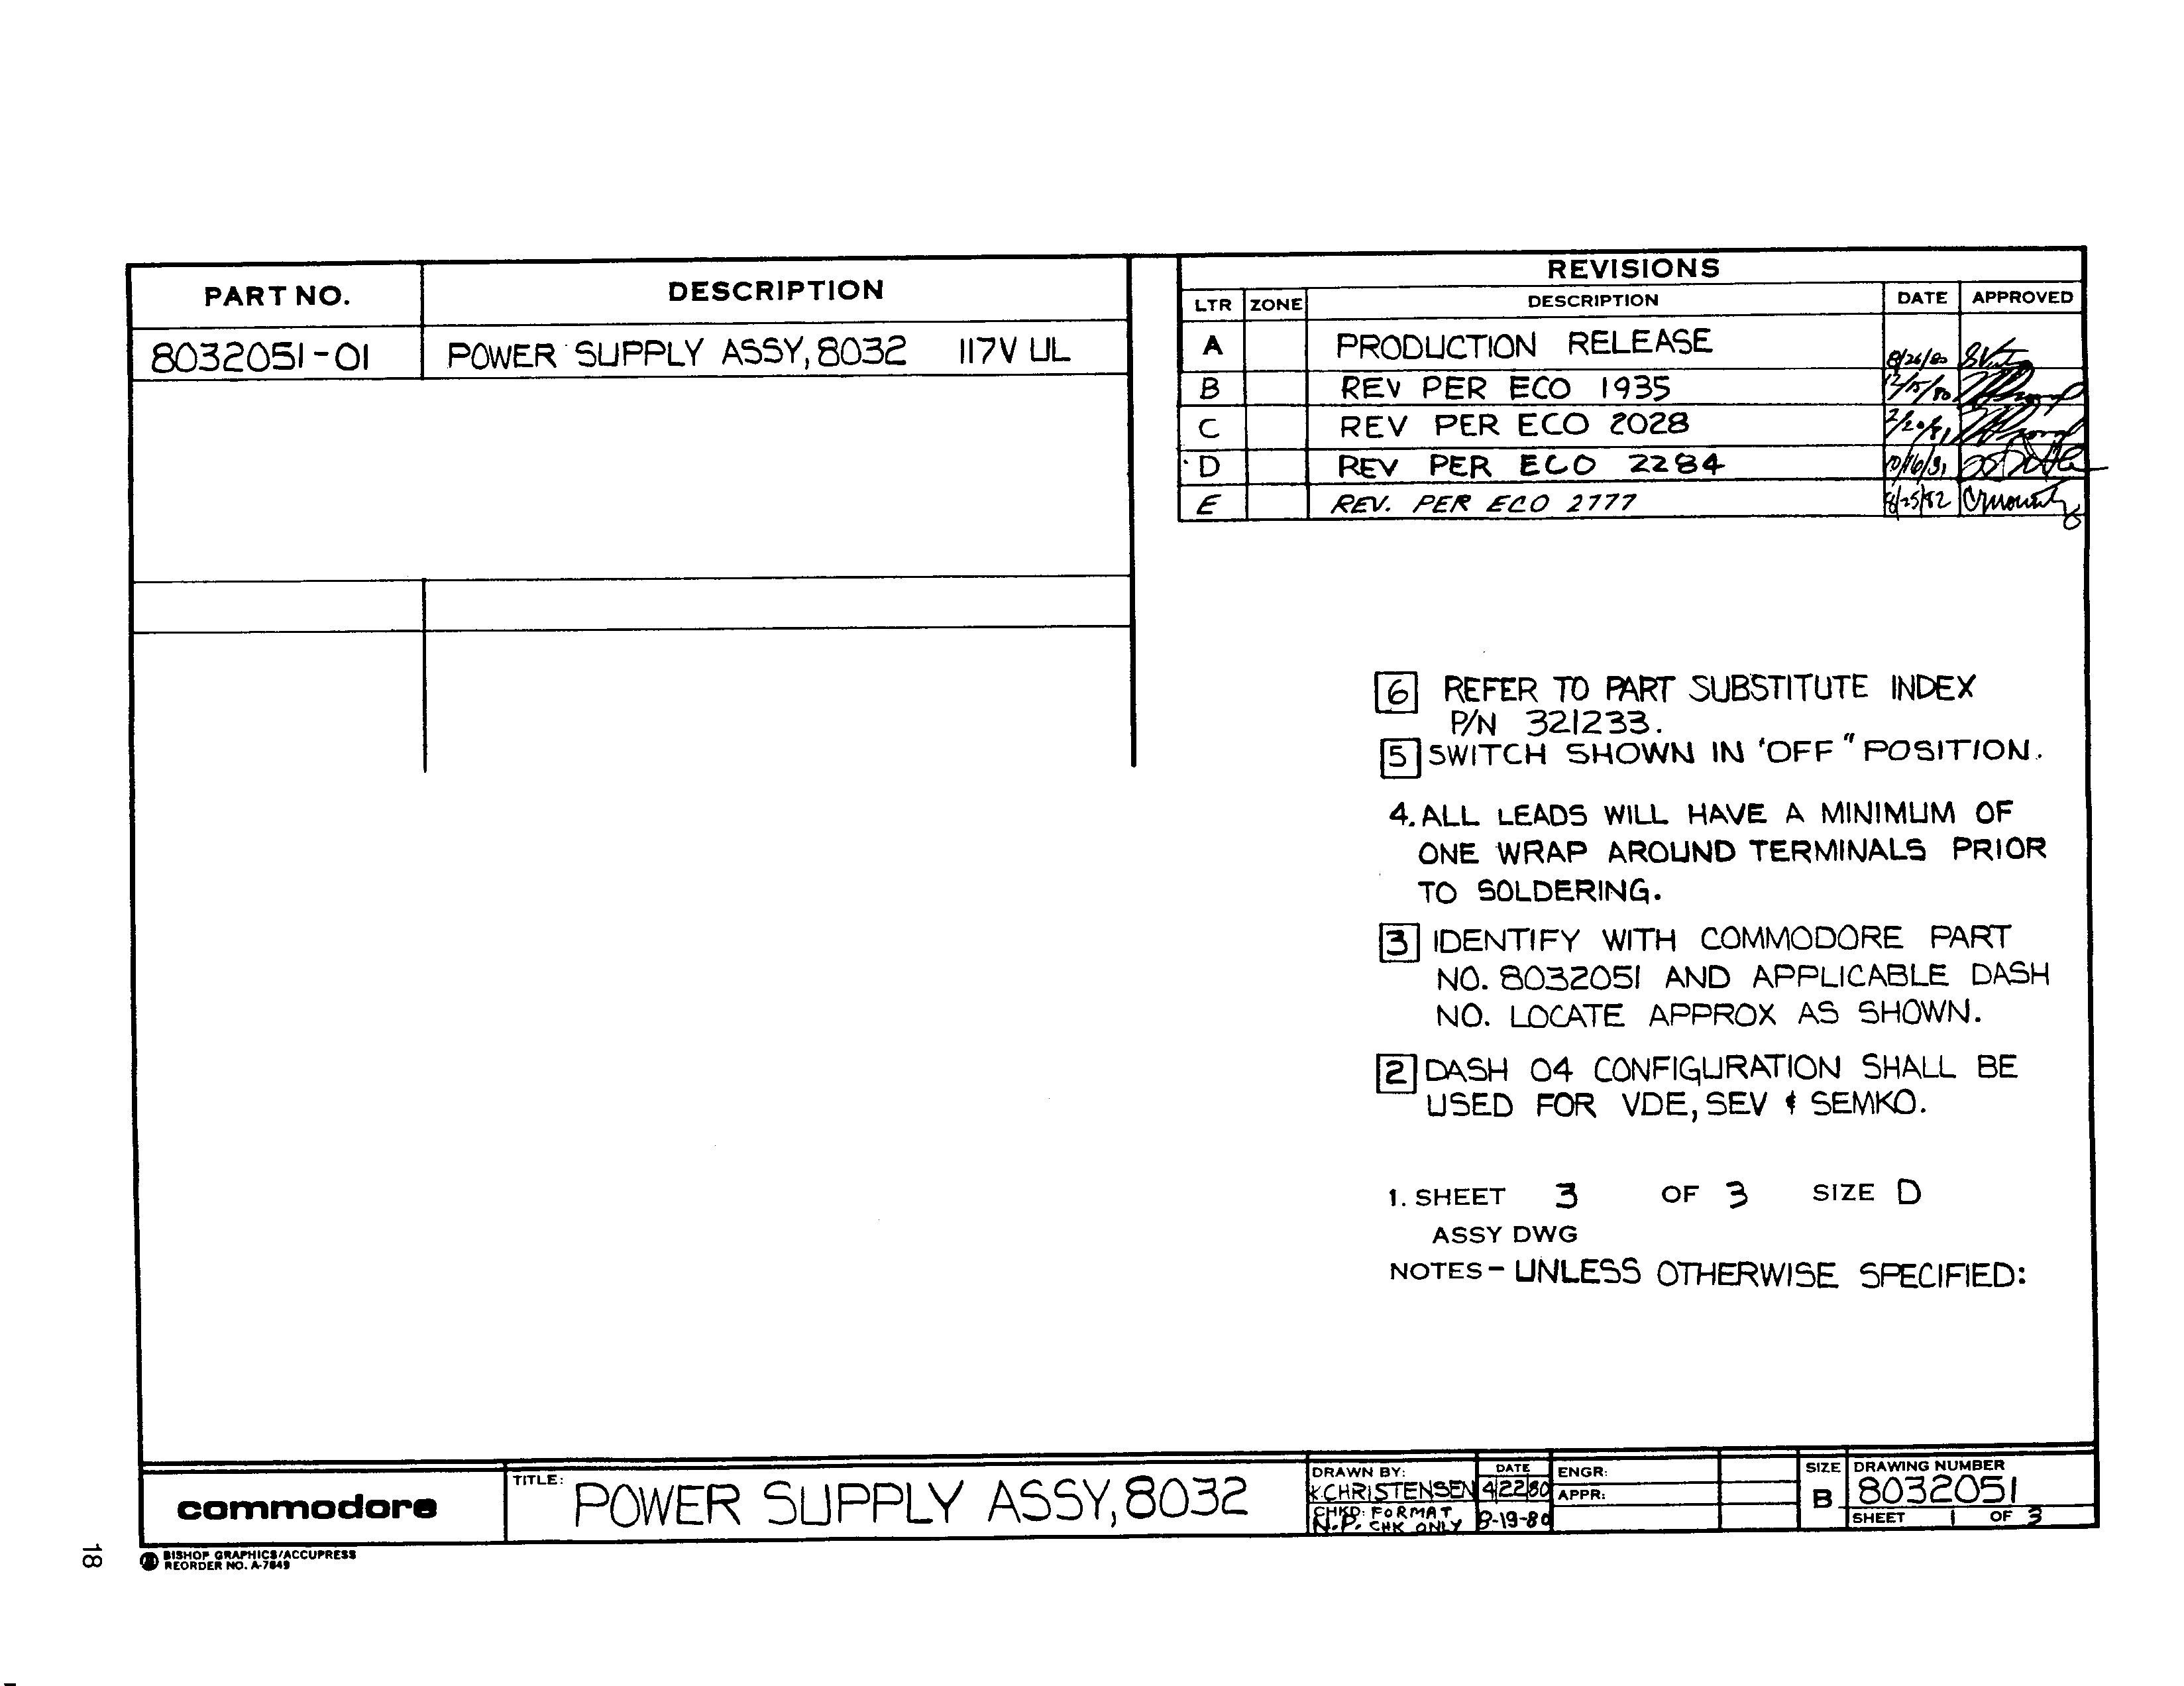 PART NO. DESCRIPTION
8032051-01 POWER SUPPLY ASSY, 8032 117V UL
REVISIONS
LTR ZONE DESCRIPTION DATE APPROVED
A PRODUCTION RELEASE 8/26/80
B REV PER ECO 1935 12/15/80
C REV PER ECO 2028 2/20/81
D REV PER ECO 2284 10/16/81
E REV. PER ECO 2777 8/25/82
6 REFER TO PART SUBSTITUTE INDEX
P/N 321233.
5 SWITCH SHOWN IN 'OFF" POSITION.
4. ALL LEADS WILL HAVE A MINIMUM OF
ONE WRAP AROUND TERMINALS PRIOR
TO SOLDERING.
3 IDENTIFY WITH COMMODORE PART
NO. 8032051 AND APPLICABLE DASH
NO. LOCATE APPROX AS SHOWN.
2 DASH 04 CONFIGURATION SHALL BE
USED FOR VDE, SEV & SEMKO.
1. SHEET 3 OF 3 SIZE D
ASSY DWG
NOTES - UNLESS OTHERWISE SPECIFIED:
commodore
TITLE: POWER SUPPLY ASSY, 8032
DRAWN BY: DATE
K.CHRISTENSEN 4 22 80
CHKD: FORMAT
N.P. CHK ONLY 8-19-80
ENGR:
APPR:
SIZE B
DRAWING NUMBER
8032051
SHEET 1 OF 3
BISHOP GRAPHICS/ACCUPRESS
REORDER NO. A-7649
18